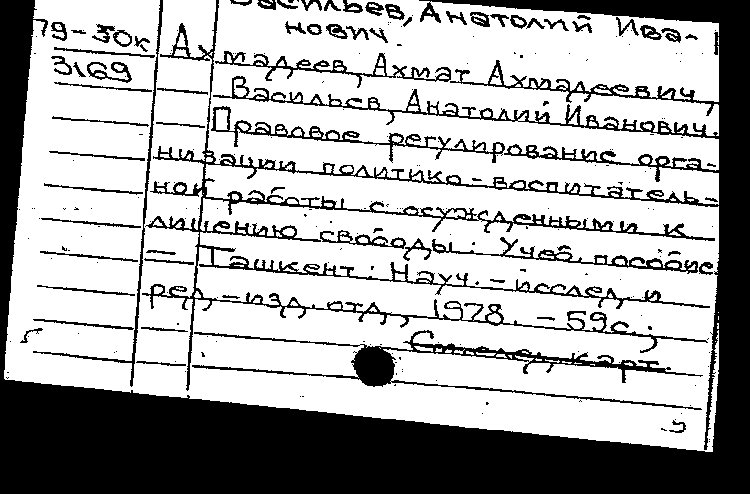 Васильев, Анатолий Ива-
нович.
79-30к
3169
Ахмадеев, Ахмат Ахмадеевич,
Васильев, Анатолий Иванович.
Правовое регулирование орга-
низации политико-воспитатель-
ной работы с осужденными к
лишению свободы: Учеб. пособие
— Ташкент: Науч.-исслед. и
ред.-изд. отд., 1978. - 59с.;
См. след. карт.